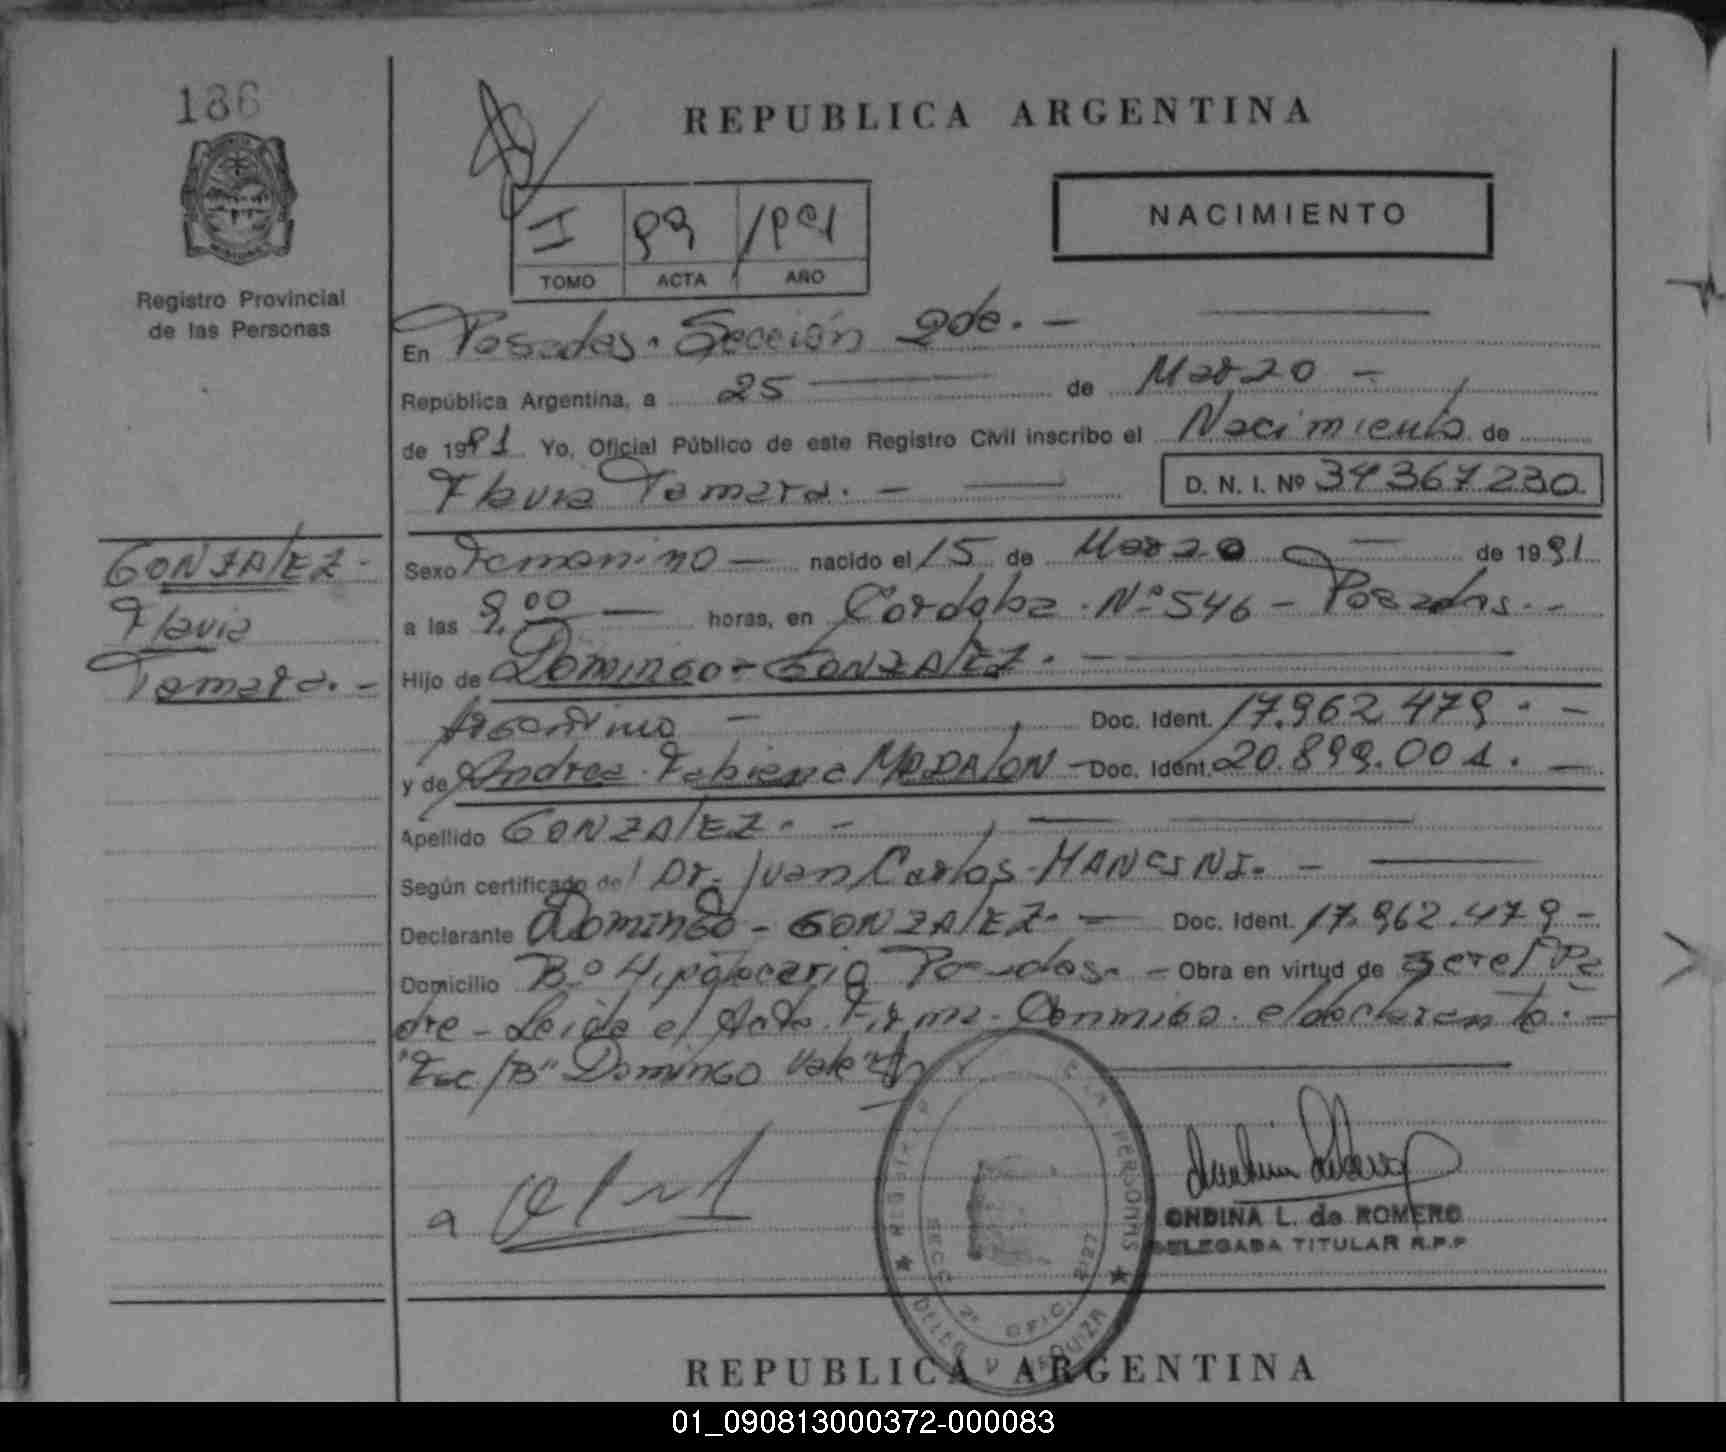 186
REPUBLICA ARGENTINA
NACIMIENTO
I 99 1991
TOMO ACTA AÑO
Registro Provincial
de las Personas
En Posadas. Sección 2da. -
República Argentina, a 25 de Marzo -
de 1991 Yo, Oficial Público de este Registro Civil inscribo el Nacimiento de
Flavia Tamara. - D. N. I. Nº 34367230
GONZALEZ -
Flavia
Tamara. -
Sexo Femenino - nacido el 15 de Marzo - de 1991
a las 9.00 - horas, en Cordoba. Nº 546 - Posadas. -
Hijo de Domingo - GONZALEZ. -
Argentino - Doc. Ident. 17.962.479. -
y de Andrea Fabiana MADALON - Doc. Ident. 20.899.001. -
Apellido GONZALEZ. -
Según certificado del Dr. Juan Carlos - MANCINI. -
Declarante Domingo - GONZALEZ. - Doc. Ident. 17.962.479 -
Domicilio Bº Hipotecario Posadas. - Obra en virtud de ser el Pa
dre - Leida el Acta. Firma. Conmigo. el declarante. -
"Esc/B" Domingo Vale
ONDINA L. de ROMERO
DELEGADA TITULAR R.P.P
REPUBLICA ARGENTINA
01_090813000372-000083